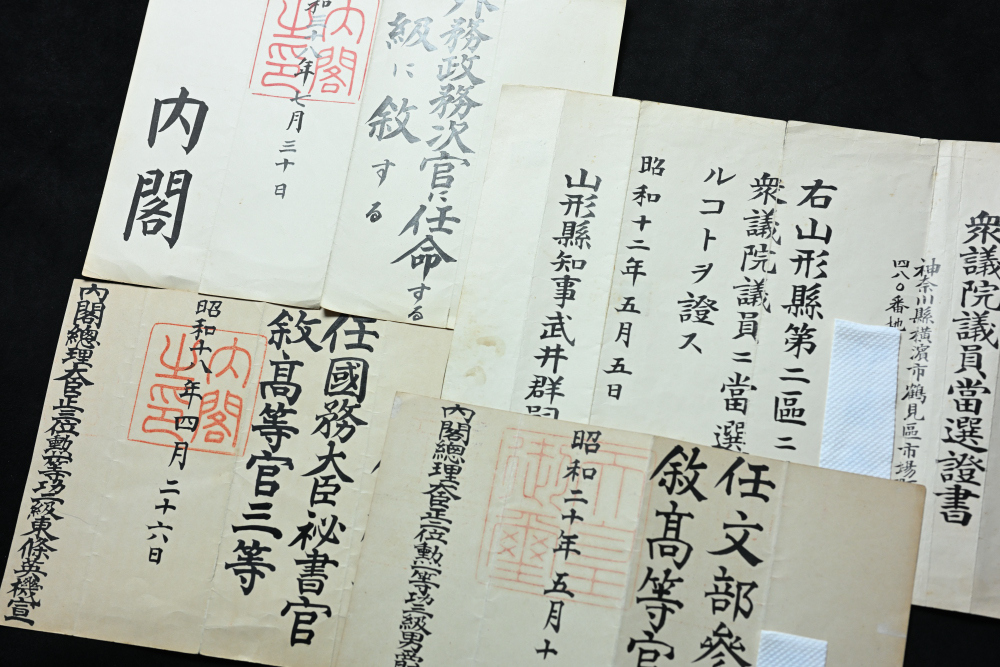 外務政務次官に任命する
級に敘する
昭和三十八年七月三十日
内閣之印
内閣
衆議院議員當選證書
神奈川縣橫濱市鶴見區市場
四八〇番地
右山形縣第二區ニ
衆議院議員ニ當選
ルコトヲ證ス
昭和十二年五月五日
山形縣知事武井群嗣
任國務大臣祕書官
敘高等官三等
昭和十八年四月二十六日
内閣之印
内閣總理大臣正三位勲一等功二級東條英機宣
任文部參
敘高等官
昭和二十年五月十
内閣總理大臣正二位勲一等功三級男爵